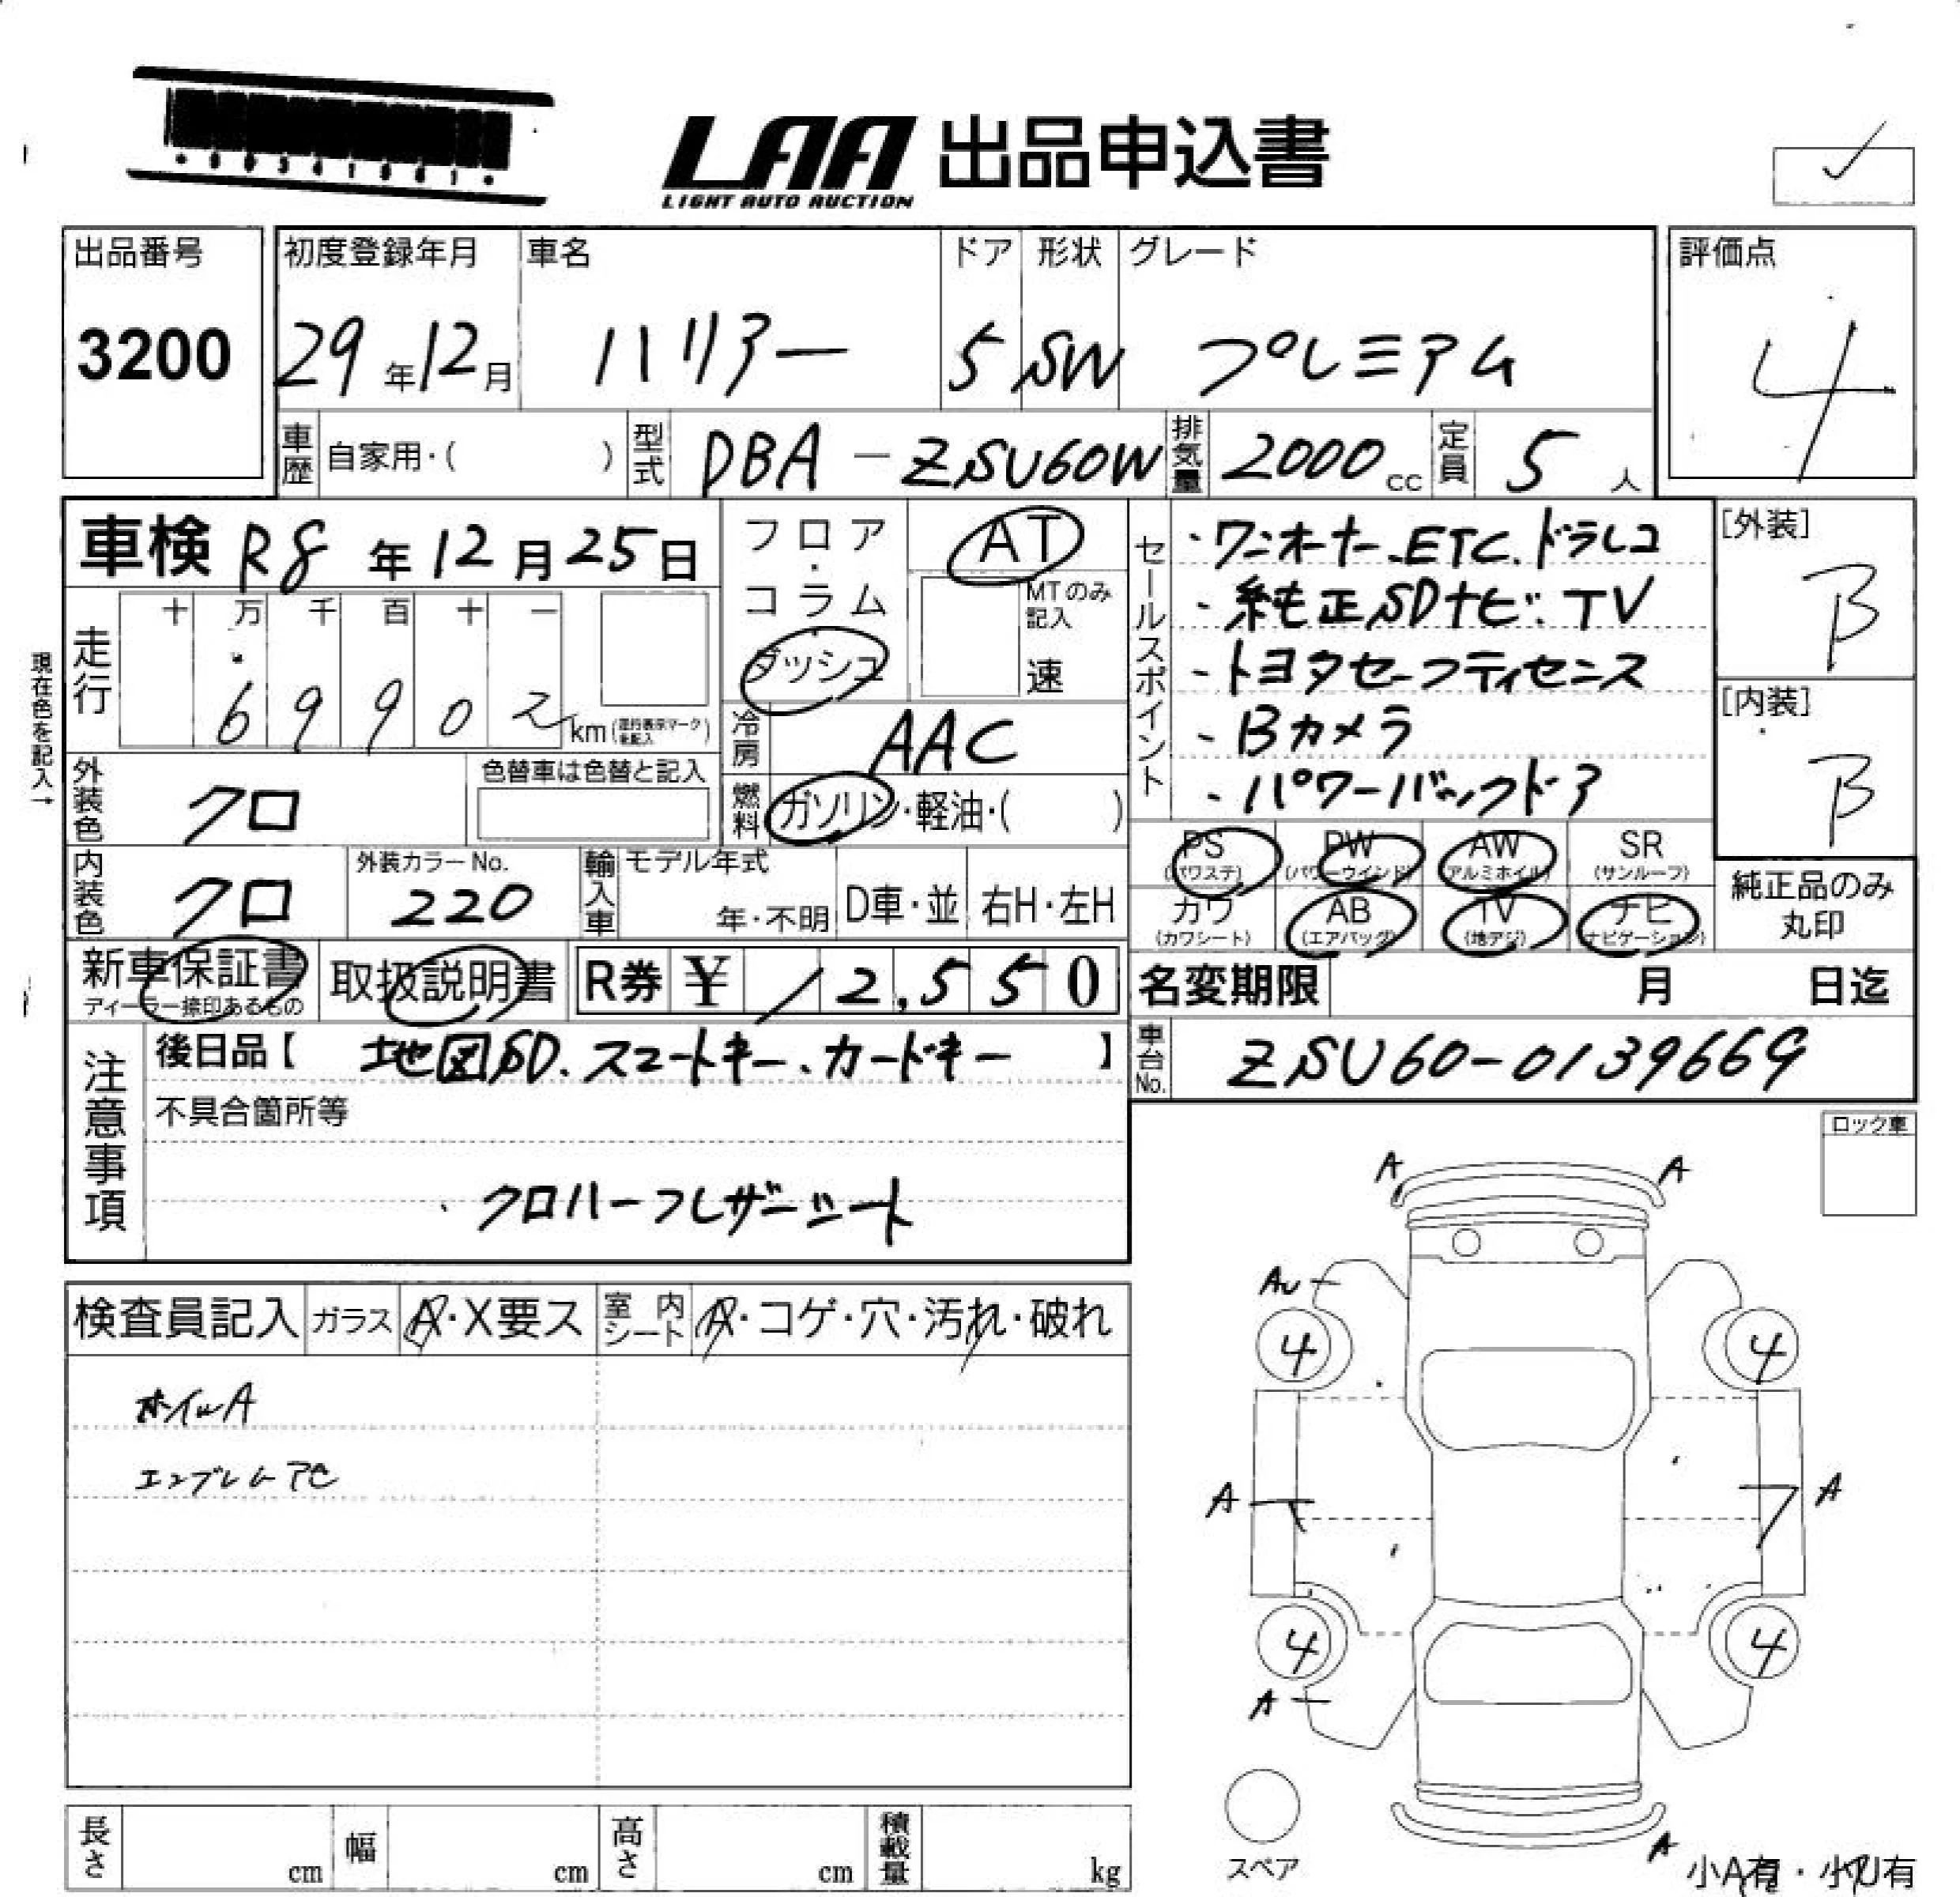 LAA 出品申込書
LIGHT AUTO AUCTION
出品番号
3200
初度登録年月
29年12月
車名
ハリアー
ドア
5
形状
SW
グレード
プレミアム
評価点
4
車歴 自家用・( )
型式 DBA-ZSU60W
排気量 2000cc
定員 5人
車検 R8年12月25日
フロア・コラム
ダッシュ
AT
MTのみ記入
速
セールスポイント
・ワンオーナー、ETC、ドラレコ
・純正SDナビ・TV
・トヨタセーフティセンス
・Bカメラ
・パワーバックドア
[外装]
B
[内装]
B
現在色を記入→
走行
十 万 千 百 十 一
69902km
冷房 AAC
外装色 クロ
色替車は色替と記入
燃料 ガソリン・軽油・( )
内装色 クロ
外装カラーNo.
220
輸入車
モデル年式
年・不明
D車・並
右H・左H
PS (パワステ)
PW (パワーウインド)
AW (アルミホイル)
SR (サンルーフ)
カワ (カワシート)
AB (エアバッグ)
TV (地デジ)
ナビ (ナビゲーション)
純正品のみ
丸印
新車保証書
ディーラー捺印あるもの
取扱説明書
R券 ¥12,550
名変期限 月 日迄
注意事項
後日品【地図SD、スマートキー、カードキー】
車台No. ZSU60-0139669
不具合箇所等
・クロハーフレザーシート
ロック車
検査員記入
ガラス A・X要ス
室内シート A・コゲ・穴・汚れ・破れ
ホイルA
エンブレム
A A
4 4
A A
4 4
A
A
スペア
小A有・小U有
長さ cm
幅 cm
高さ cm
積載量 kg